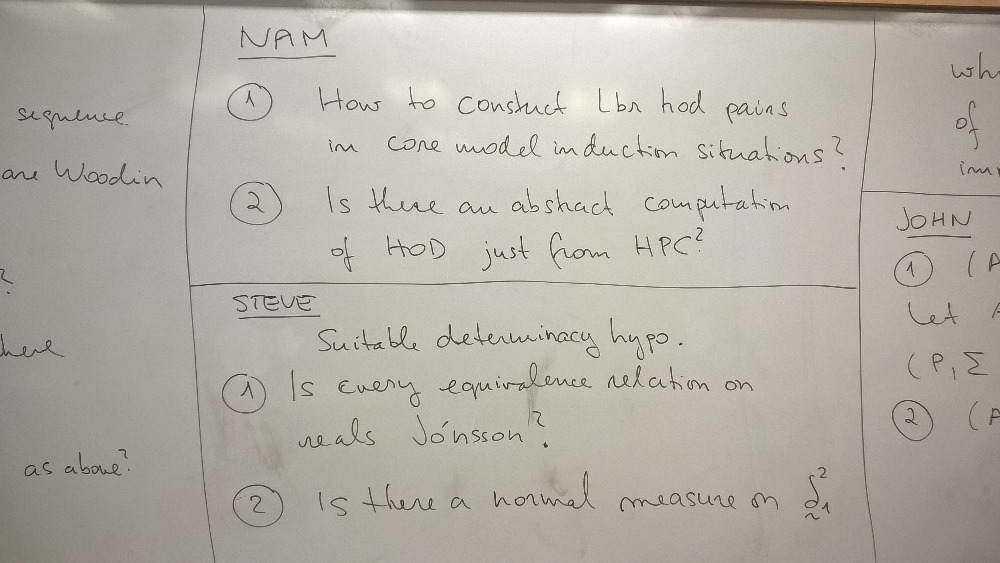 sequence
are Woodin
?
here
as above?
NAM
① How to constuct Lbr hod pairs
in core model induction situations?
② Is there an abstract computation
of HOD just from HPC?
STEVE
Suitable determinacy hypo.
① Is every equivalence relation on
reals Jónsson?
② Is there a normal measure on δ̰²₁
of
JOHN
① (A
Let A
(P, Σ
② (A